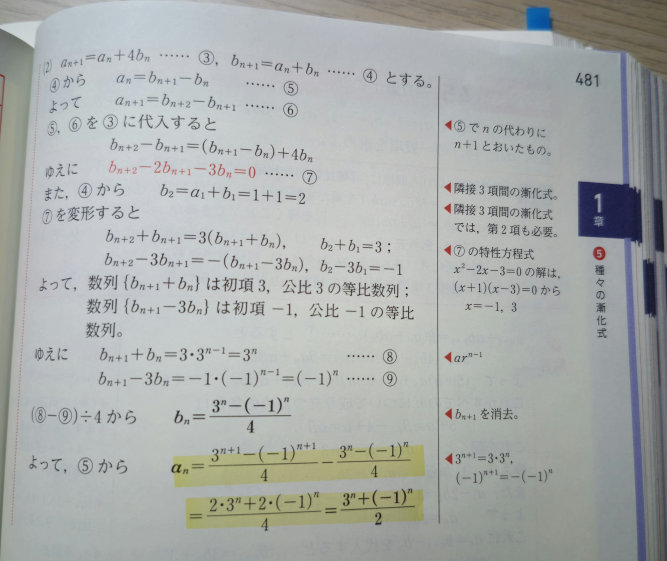 481
(2) aₙ₊₁=aₙ+4bₙ …… ③, bₙ₊₁=aₙ+bₙ …… ④ とする。
④から aₙ=bₙ₊₁−bₙ …… ⑤
よって aₙ₊₁=bₙ₊₂−bₙ₊₁ …… ⑥
⑤, ⑥を③に代入すると
bₙ₊₂−bₙ₊₁=(bₙ₊₁−bₙ)+4bₙ
ゆえに bₙ₊₂−2bₙ₊₁−3bₙ=0 …… ⑦
また, ④から b₂=a₁+b₁=1+1=2
⑦を変形すると
bₙ₊₂+bₙ₊₁=3(bₙ₊₁+bₙ), b₂+b₁=3;
bₙ₊₂−3bₙ₊₁=−(bₙ₊₁−3bₙ), b₂−3b₁=−1
よって, 数列{bₙ₊₁+bₙ}は初項3, 公比3の等比数列;
数列{bₙ₊₁−3bₙ}は初項−1, 公比−1の等比
数列。
ゆえに bₙ₊₁+bₙ=3・3ⁿ⁻¹=3ⁿ …… ⑧
bₙ₊₁−3bₙ=−1・(−1)ⁿ⁻¹=(−1)ⁿ …… ⑨
(⑧−⑨)÷4から bₙ=(3ⁿ−(−1)ⁿ)/4
よって, ⑤から aₙ=(3ⁿ⁺¹−(−1)ⁿ⁺¹)/4−(3ⁿ−(−1)ⁿ)/4
=(2・3ⁿ+2・(−1)ⁿ)/4=(3ⁿ+(−1)ⁿ)/2
◀⑤でnの代わりに
n+1とおいたもの。
◀隣接3項間の漸化式。
◀隣接3項間の漸化式
では, 第2項も必要。
◀⑦の特性方程式
x²−2x−3=0の解は,
(x+1)(x−3)=0から
x=−1, 3
◀arⁿ⁻¹
◀bₙ₊₁を消去。
◀3ⁿ⁺¹=3・3ⁿ,
(−1)ⁿ⁺¹=−(−1)ⁿ
1
章
❺種々の漸化式